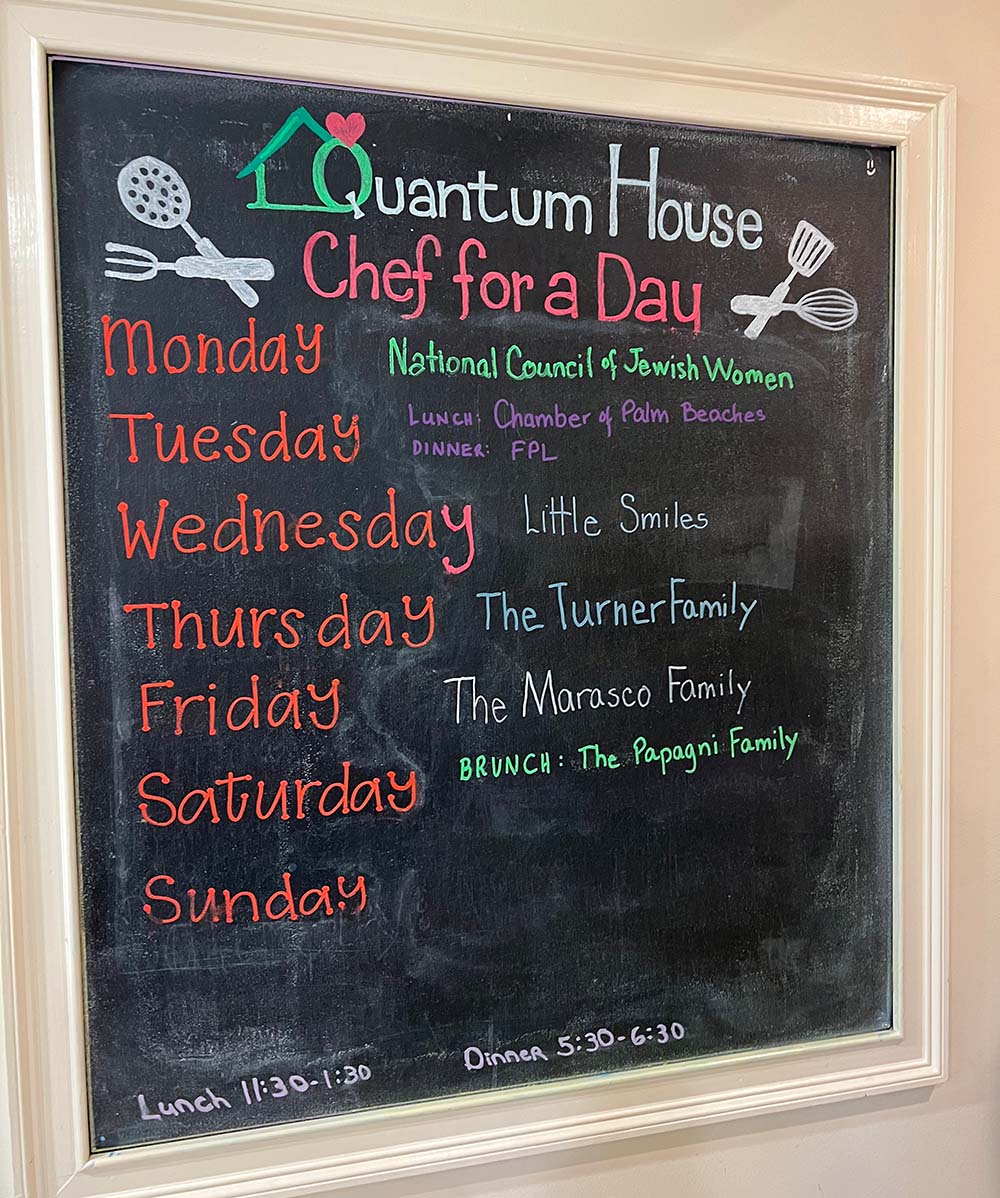 Quantum House
Chef for a Day
Monday National Council of Jewish Women
Tuesday LUNCH: Chamber of Palm Beaches
DINNER: FPL
Wednesday Little Smiles
Thursday The Turner Family
Friday The Marasco Family
BRUNCH: The Papagni Family
Saturday
Sunday
Lunch 11:30-1:30 Dinner 5:30-6:30